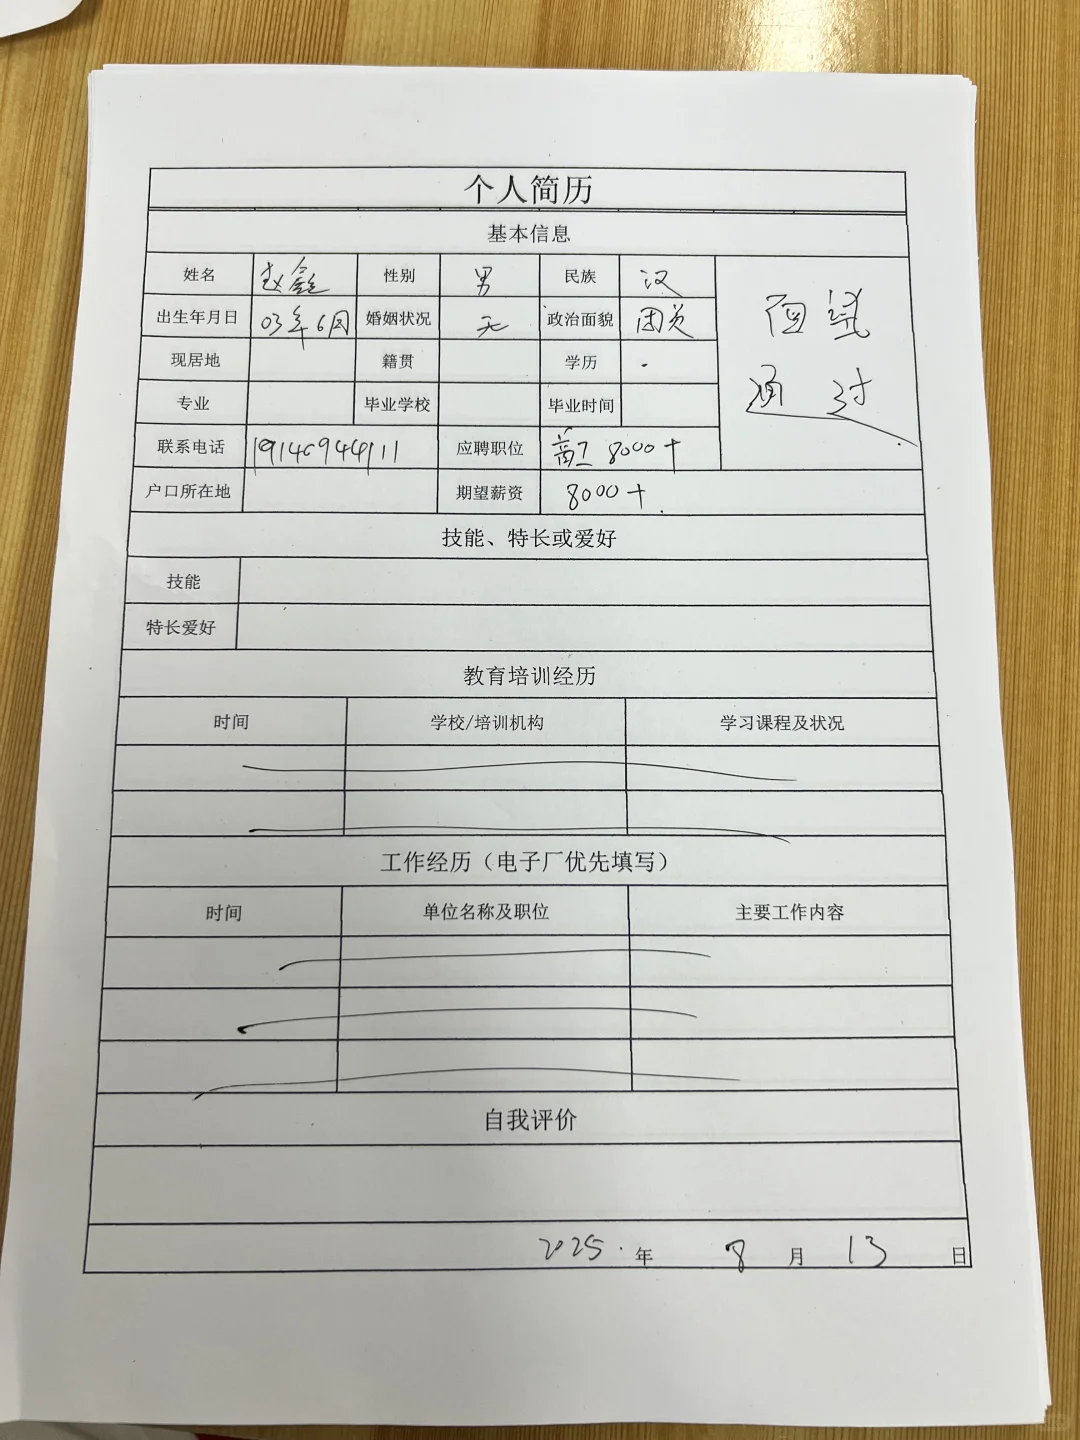 个人简历
基本信息
姓名 赵鑫 性别 男 民族 汉
出生年月日 03年6月 婚姻状况 无 政治面貌 团员
面试
通过
现居地 籍贯 学历
专业 毕业学校 毕业时间
联系电话 应聘职位 8000+
户口所在地 期望薪资 8000+
技能、特长或爱好
技能
特长爱好
教育培训经历
时间 学校/培训机构 学习课程及状况
工作经历（电子厂优先填写）
时间 单位名称及职位 主要工作内容
自我评价
2025.年 8 月 13 日